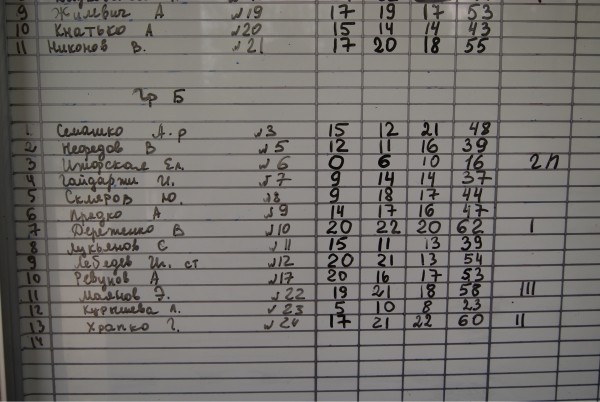 9 Жилевич А №19 17 19 17 53
10 Кнатько А №20 15 14 14 43
11 Никонов В. №21 17 20 18 55
Гр Б
1. Семашко А.р №3 15 12 21 48
2 Нефедов В №5 12 11 16 39
3 Ижорская Ел. №6 0 6 10 16 2Л
4 Гайдаржи И. №7 9 14 14 37
5 Скляров Ю. №8 9 18 17 44
6 Предко А №9 14 17 16 47
7 Дереженко В №10 20 22 20 62 I
8 Лукьянов Є №11 15 11 13 39
9 Лебедев И. ст №12 20 21 13 54
10 Ревуков А №17 20 16 17 53
11 Маянов Э. №22 19 21 18 58 III
12 Курышева Л. №23 5 10 8 23
13 Храпко Г. №24 17 21 22 60 II
14